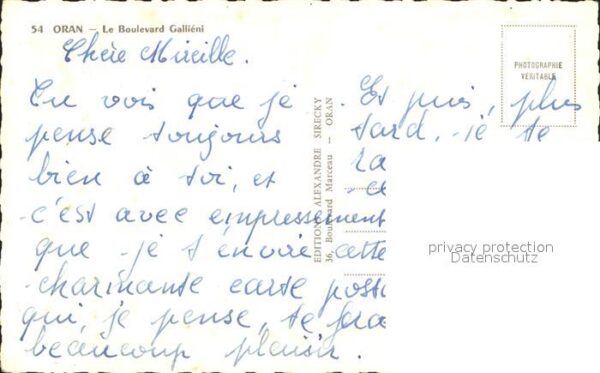 54 ORAN — Le Boulevard Galliéni
Chère Mireille.
Tu vois que je
pense toujours
bien à toi, et
c'est avec empressement
que je t'envoie cette
charmante carte post
qui, je pense, te fera
beaucoup plaisir.
EDITIONS ALEXANDRE SIRECKY
36, Boulevard Marceau — ORAN
Et puis, plus
tard, je te
ra
ce
PHOTOGRAPHIE
VÉRITABLE
privacy protection
Datenschutz